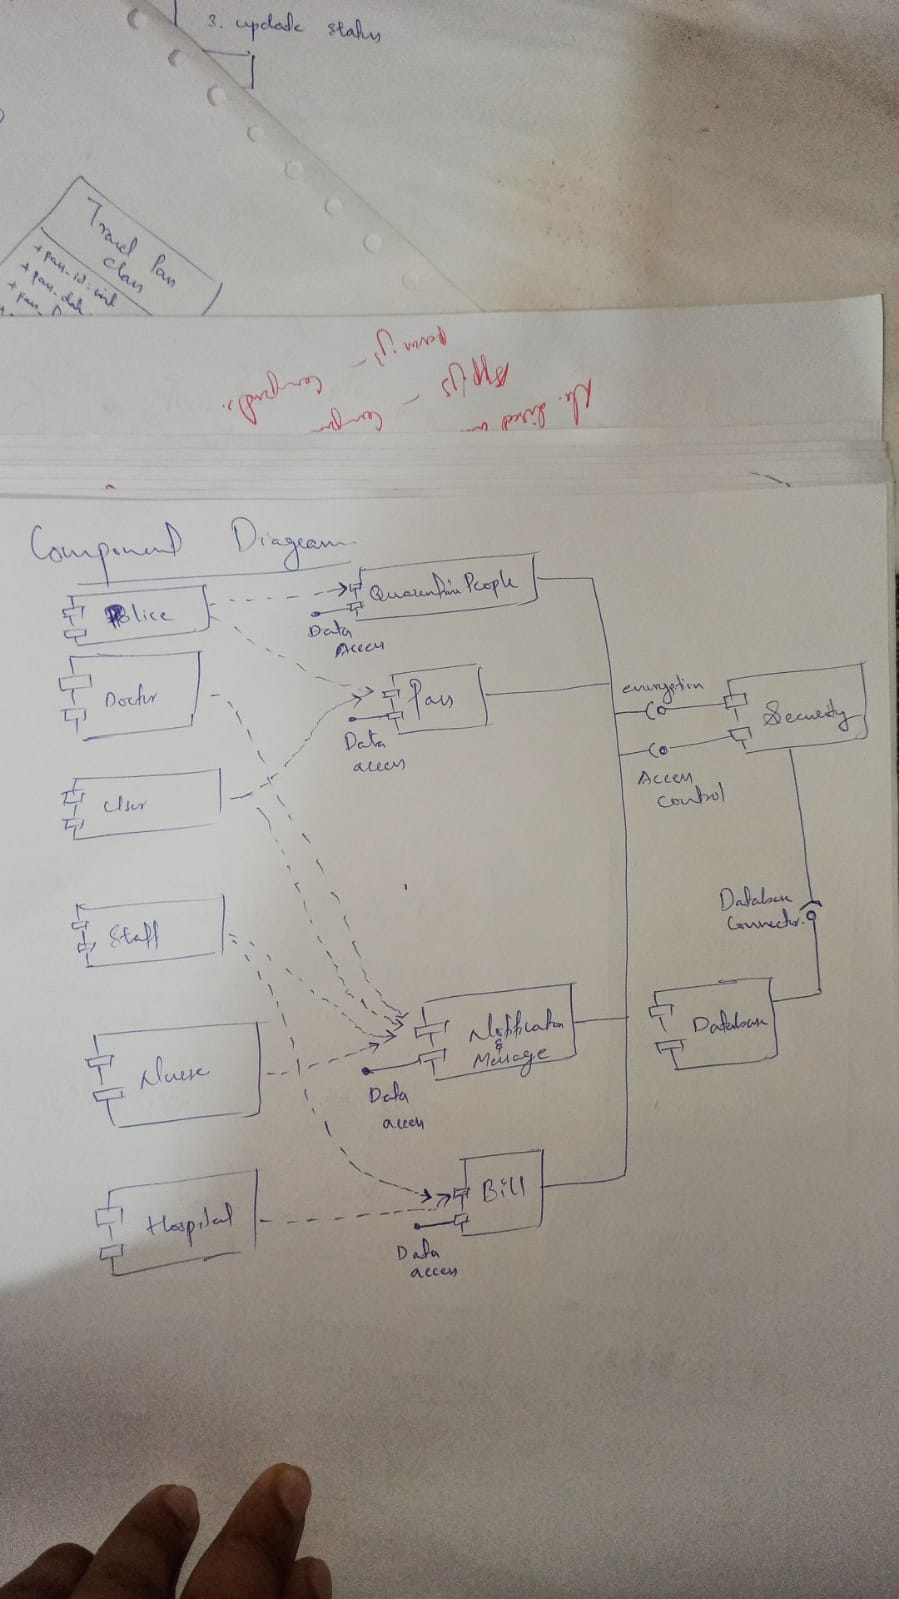 3. update status
Travel Pass
class
+ pass-id: int
+ pass-date
+ pass-
Component Diagram
Police
Doctor
User
Staff
Nurse
Hospital
Quarantine People
Data
Access
Pass
Data
access
Notification
&
Message
Data
access
Bill
Data
access
encryption
Access
Control
Security
Database
Connector.
Database